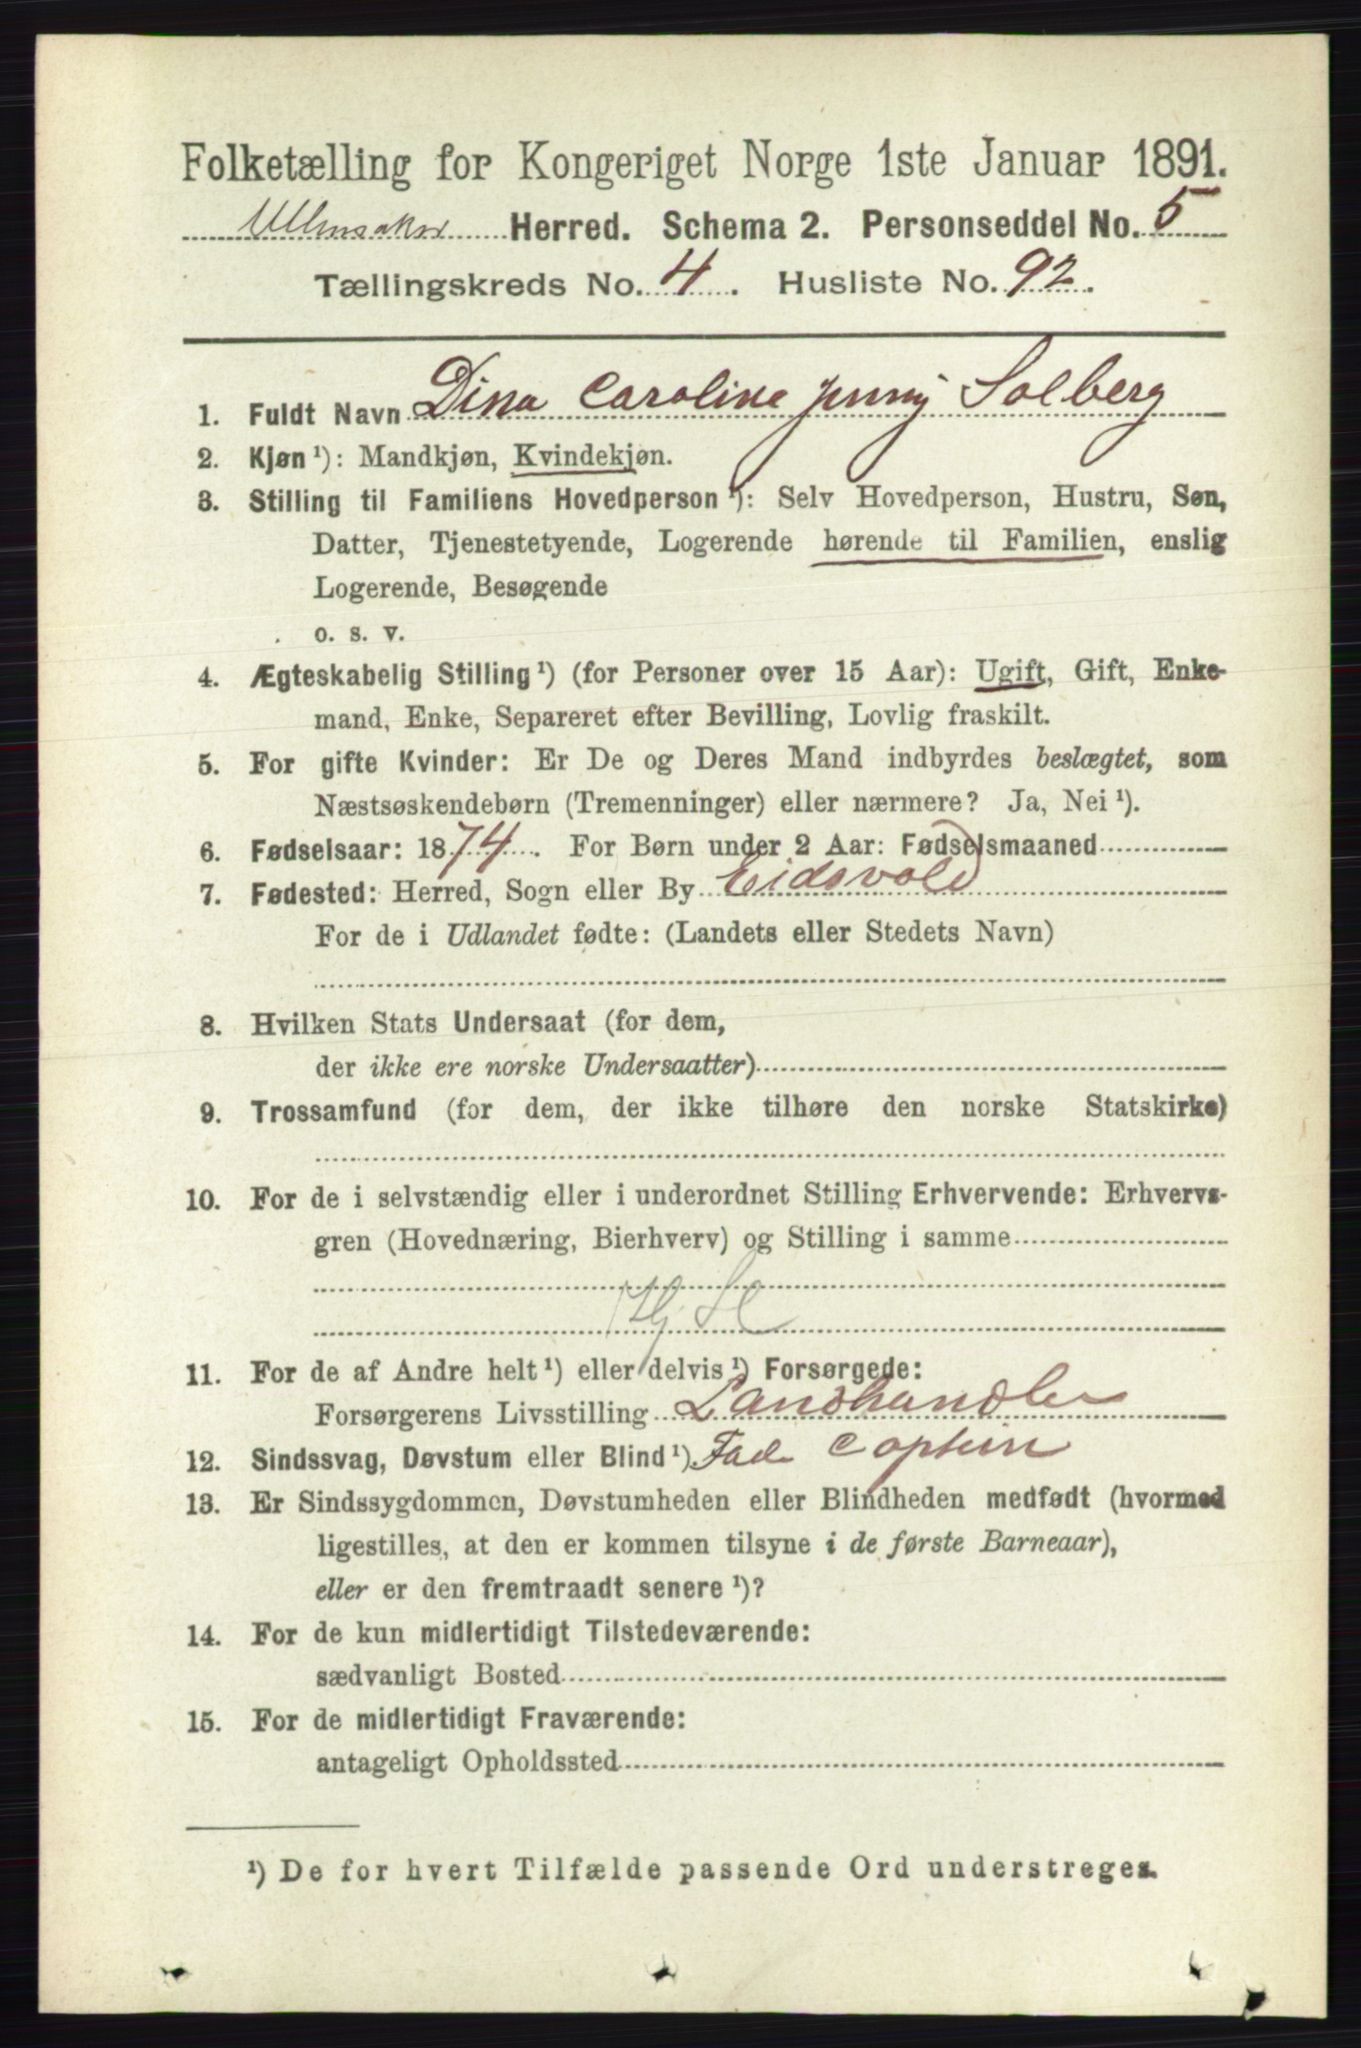 Folketælling for Kongeriget Norge 1ste Januar 1891.
Ullensaker Herred. Schema 2. Personseddel No. 5
Tællingskreds No. 4. Husliste No. 92.
1. Fuldt Navn Dina Caroline Jenny Solberg
2. Kjøn ¹): Mandkjøn, Kvindekjøn.
3. Stilling til Familiens Hovedperson ¹): Selv Hovedperson, Hustru, Søn,
Datter, Tjenestetyende, Logerende hørende til Familien, enslig
Logerende, Besøgende
o. s. v.
4. Ægteskabelig Stilling ¹) (for Personer over 15 Aar): Ugift, Gift, Enke-
mand, Enke, Separeret efter Bevilling, Lovlig fraskilt.
5. For gifte Kvinder: Er De og Deres Mand indbyrdes beslægtet, som
Næstsøskendebørn (Tremenninger) eller nærmere? Ja, Nei ¹).
6. Fødselsaar: 1874. For Børn under 2 Aar: Fødselsmaaned
7. Fødested: Herred, Sogn eller By Eidsvold
For de i Udlandet fødte: (Landets eller Stedets Navn)
8. Hvilken Stats Undersaat (for dem,
der ikke ere norske Undersaatter)
9. Trossamfund (for dem, der ikke tilhøre den norske Statskirke)
10. For de i selvstændig eller i underordnet Stilling Erhvervende: Erhvervs-
gren (Hovednæring, Bierhverv) og Stilling i samme
11. For de af Andre helt ¹) eller delvis ¹) Forsørgede:
Forsørgerens Livsstilling Landhandler
12. Sindssvag, Døvstum eller Blind ¹)
13. Er Sindssygdommen, Døvstumheden eller Blindheden medfødt (hvormed
ligestilles, at den er kommen tilsyne i de første Barneaar),
eller er den fremtraadt senere ¹)?
14. For de kun midlertidigt Tilstedeværende:
sædvanligt Bosted
15. For de midlertidigt Fraværende:
antageligt Opholdssted
¹) De for hvert Tilfælde passende Ord understreges.